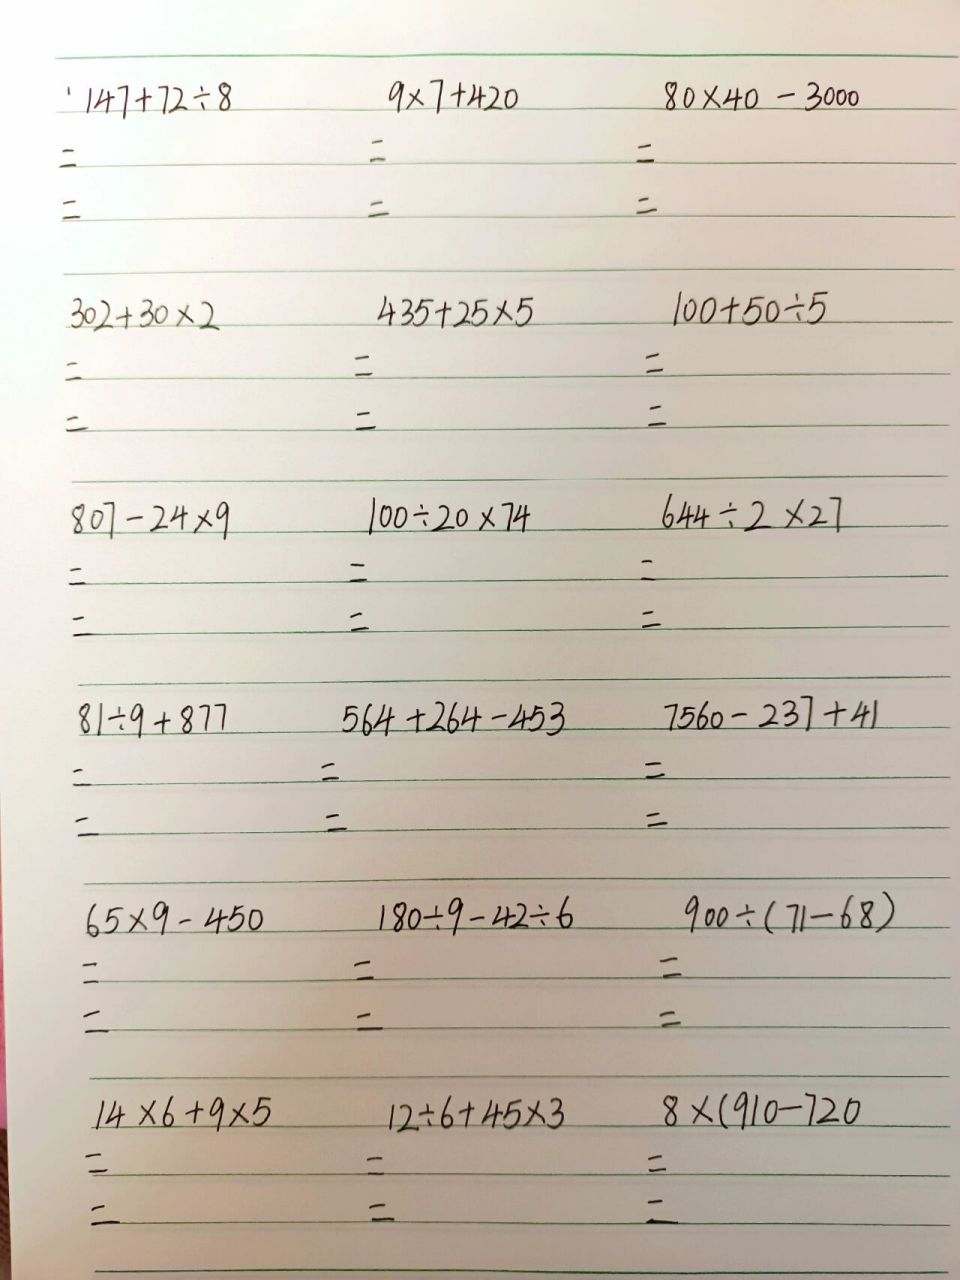 147+72÷8 9×7+420 80×40-3000
= = =
= = =
302+30×2 435+25×5 100+50÷5
= = =
= = =
807-24×9 100÷20×74 644÷2×27
= = =
= = =
81÷9+877 564+264-453 7560-237+41
= = =
= = =
65×9-450 180÷9-42÷6 900÷(71-68)
= = =
= = =
14×6+9×5 12÷6+45×3 8×(910-720
= = =
= = =